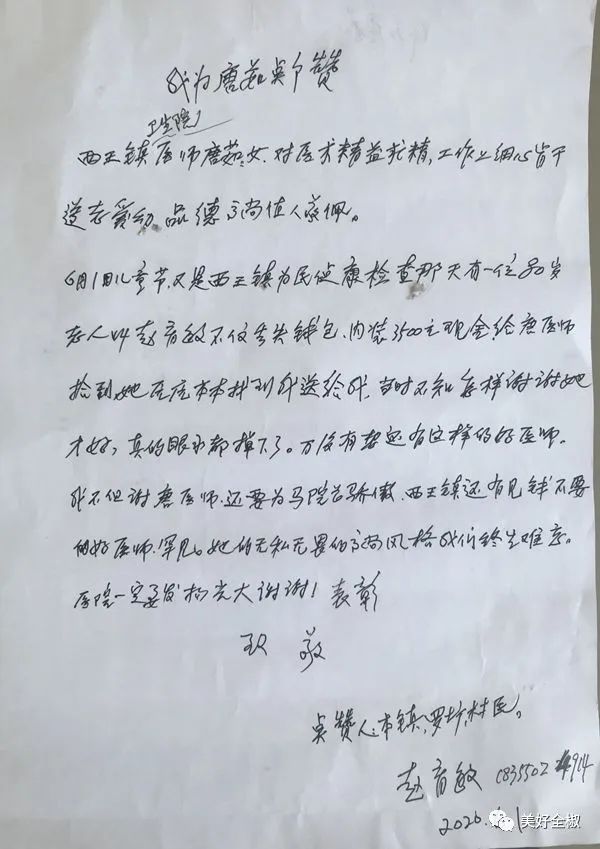 我为唐茹点个赞
卫生院
西王镇医师唐茹女.对医术精益求精,工作上细心皆干
道志爱动.品德高尚值人敬佩。
6月1日儿童节,又是西王镇为民健康检查那天有一位80岁
老人叫赵育敏不仅丢失钱包.内装3500元现金给唐医师
拾到,她匠庄本本找到我送给我.当时不知怎样谢谢她
才好,真的眼水都掉下了。万没有想还有这样的好医师.
我不但谢唐医师.还要为马院长骄傲.西王镇还有见钱不要
的好医师.罕见。她的无私无畏的高尚风格我们终生难忘。
医院一定要发扬光大谢谢!表彰
致敬
点赞人:本镇,罗圩,村民。
赵育敏 1835502 4914
2020.
美好全椒